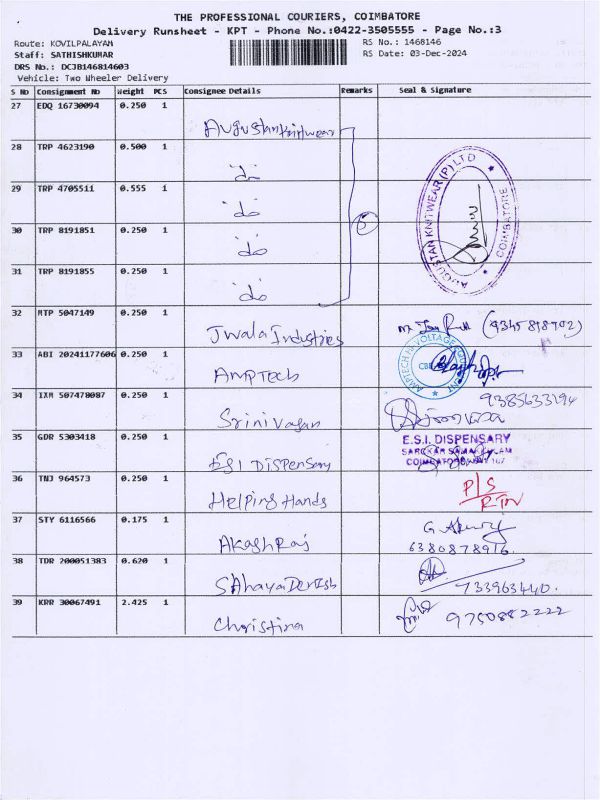 THE PROFESSIONAL COURIERS, COIMBATORE
Delivery Runsheet - KPT - Phone No.:0422-3505555 - Page No.:3
Route: KOVILPALAYAM
Staff: SATHISHKUMAR
DRS No.: DCJB146814603
Vehicle: Two Wheeler Delivery
RS No.: 1468146
RS Date: 03-Dec-2024
S No Consignment No Weight PCS Consignee Details Remarks Seal & Signature
27 EDQ 16730094 0.250 1 Augustan Knitwear
28 TRP 4623190 0.500 1 do
29 TRP 4705511 0.555 1 do
30 TRP 8191851 0.250 1 do
31 TRP 8191855 0.250 1 do
5
AUGUSTAN KNITWEAR (P) LTD
COIMBATORE
32 MTP 5047149 0.250 1 Jwala Industries
33 ABI 20241177606 0.250 1 AMPTECH
34 IXM 507478087 0.250 1 Srinivasan 9385633194
35 GDR 5303418 0.250 1 ESI Dispensary
E.S.I. DISPENSARY
36 TNJ 964573 0.250 1 Helping Hands P/S RTN
37 STY 6116566 0.175 1 Akash Raj 6380878916
38 TDR 200051383 0.620 1 Sahaya Denish 733963440.
39 KRR 30067491 2.425 1 Christina 9750882222